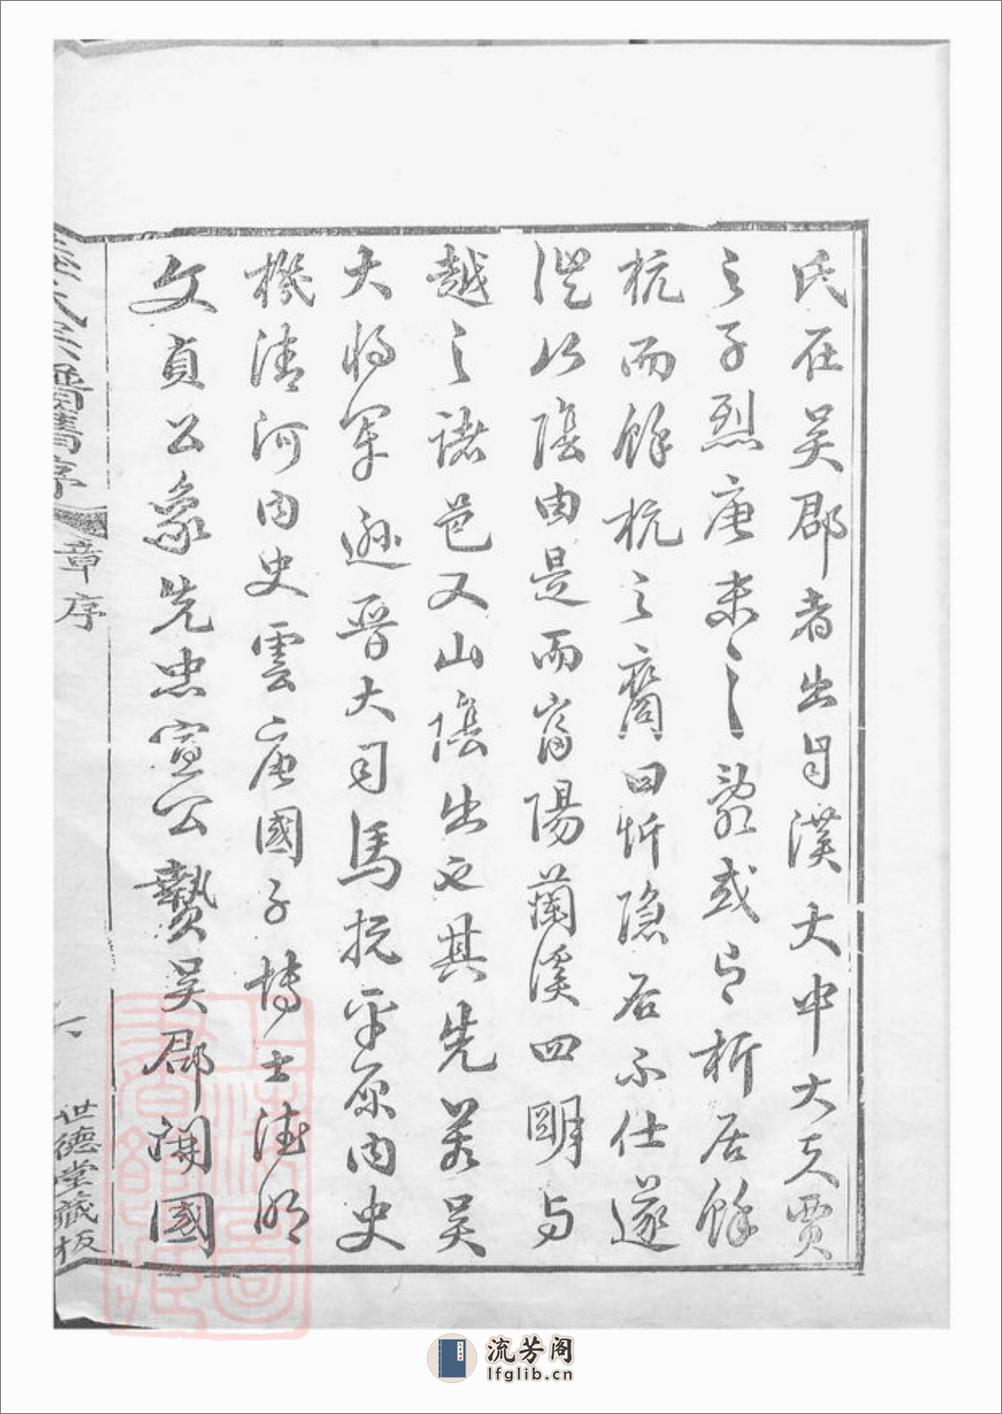 氏在吴郡者出自漢大中大夫賈
之子烈唐末之亂或析居餘
杭而餘杭之裔曰忻隐居不仕遂
徙陰由是而富陽蘭溪四明与
越之諸邑又山陰出也其先若吴
大将军逊晋大司馬抗平原内史
機清河内史雲唐國子博士德明
文貞公象先忠宣公贄吴郡開國
氏宗譜舊序
章序
世德堂藏板
流芳阁
lfglib.cn